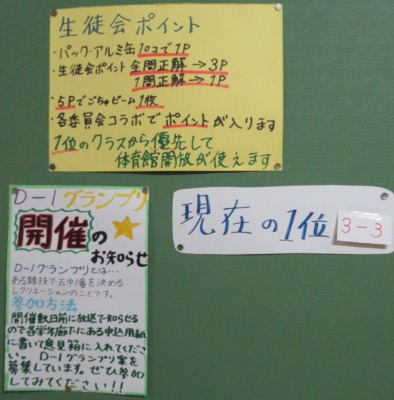 生徒会ポイント
・パック・アルミ缶10コで1P
・生徒会ポイント 全問正解→3P
1問正解→1P
・5Pでごちゅビーム1枚
・各委員会コラボでポイントが入ります
1位のクラスから優先して
体育館開放が使えます
D-1グランプリ
開催の
お知らせ
D-1グランプリとは…
ある競技で五中1番を決める
レクリエーションのことです。
参加方法
開催数日前に放送で知らせる
ので各学年廊下にある申込用紙
に書いて意見箱に入れてくださ
い。D-1グランプリ案を
募集しています。ぜひ参加
してみてください!!
現在の1位 3-3